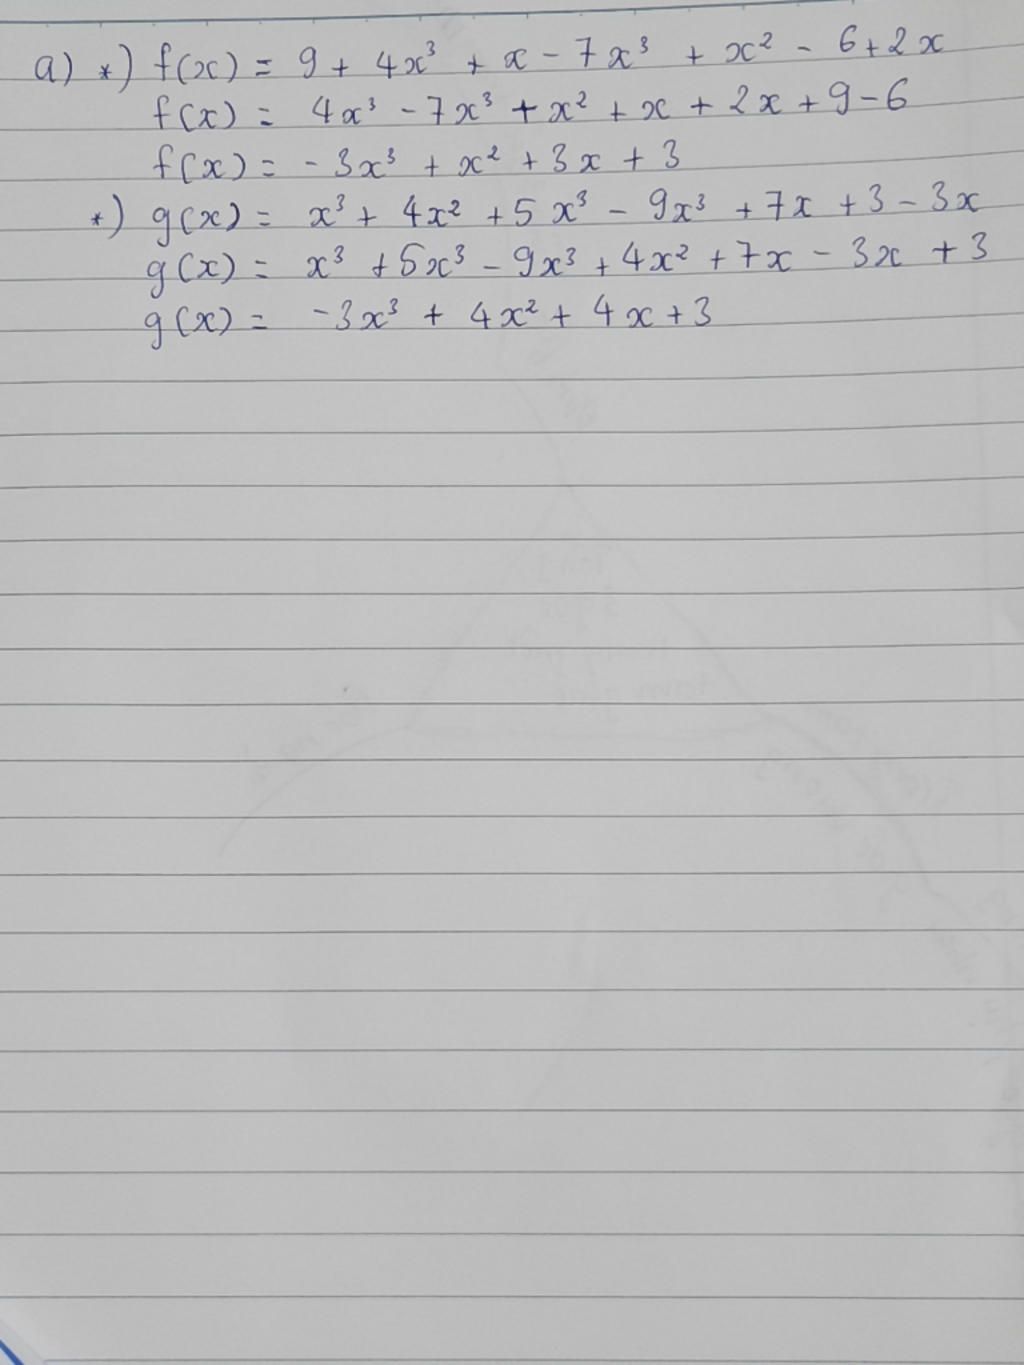 a) *) f(x) = 9 + 4x³ + x - 7x³ + x² - 6 + 2x
f(x) = 4x³ - 7x³ + x² + x + 2x + 9 - 6
f(x) = - 3x³ + x² + 3x + 3
*) g(x) = x³ + 4x² + 5x³ - 9x³ + 7x + 3 - 3x
g(x) = x³ + 5x³ - 9x³ + 4x² + 7x - 3x + 3
g(x) = -3x³ + 4x² + 4x + 3